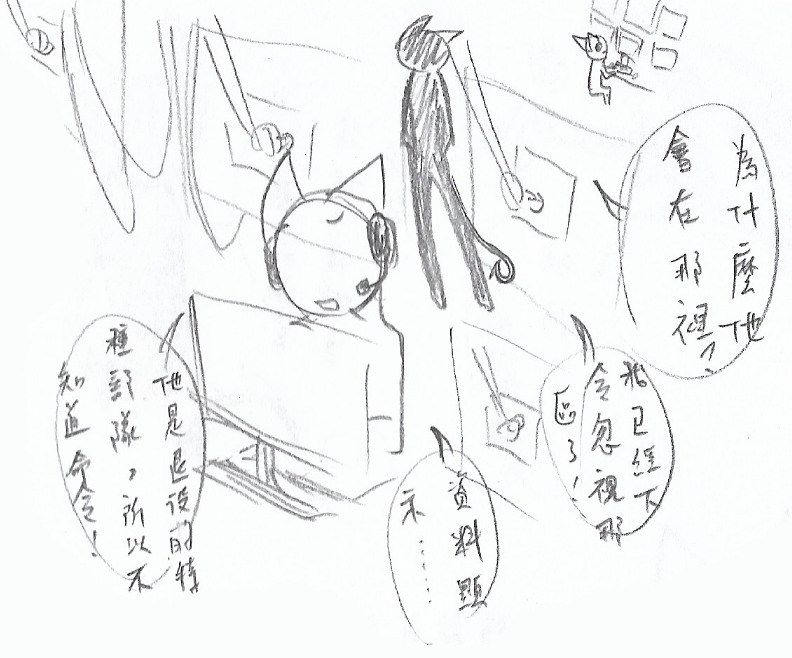 為什麼他
會在那裡?
我已經下
令忽視那
區了!
資料顯
示……
他是退役的特
種部隊,所以不
知道命令!